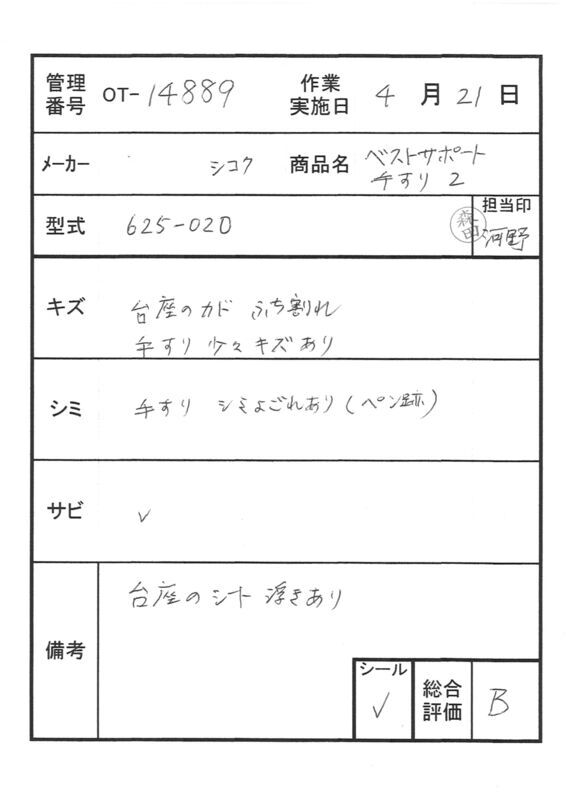 管理番号 OT-14889 作業実施日 4月21日
メーカー シコク 商品名 ベストサポート
手すり 2
型式 625-020 担当印
森田 河野
キズ 台座のカド ふち割れ
手すり 少々キズあり
シミ 手すり シミよごれあり(ペン跡)
サビ ✓
備考 台座のシート 浮きあり
シール ✓ 総合評価 B